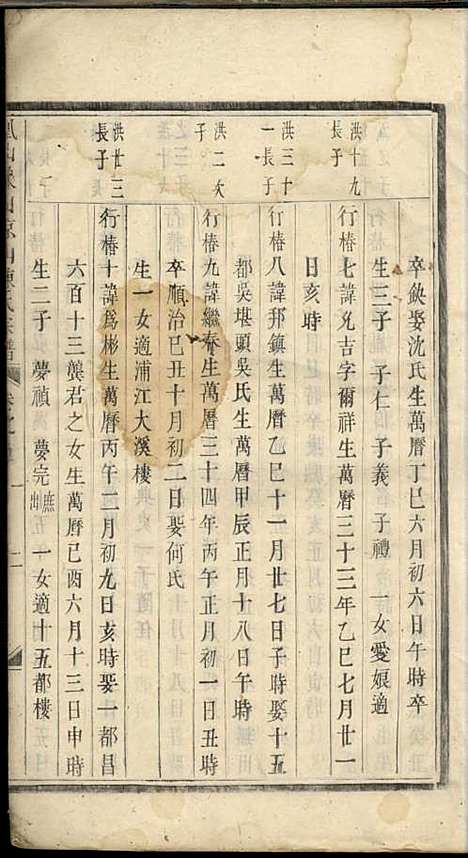 卒缺娶沈氏生萬曆丁巳六月初六日午時卒
生三子 子仁 子義 子禮 一女愛娘適
洪十九
長子
行椿七諱兆吉字爾祥生萬曆三十三年乙巳七月廿一
日亥時
洪三十
一長子
行椿八諱邦鎮生萬曆乙巳十一月廿七日子時娶十五
都吳堪頭吳氏生萬曆甲辰正月十八日午時
洪二次
子
行椿九諱繼春生萬曆三十四年丙午正月初一日丑時
卒順治己丑十月初二日娶何氏
生一女適浦江大溪樓
洪廿三
長子
行椿十諱為彬生萬曆丙午二月初九日亥時娶一都昌
六百十三龔君之女生萬曆己酉六月十三日申時
生二子 夢禎 夢完庶出 一女適十五都樓